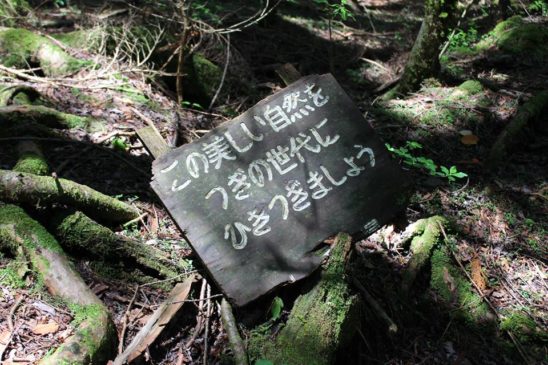 この美しい自然を
つぎの世代に
ひきつぎましょう